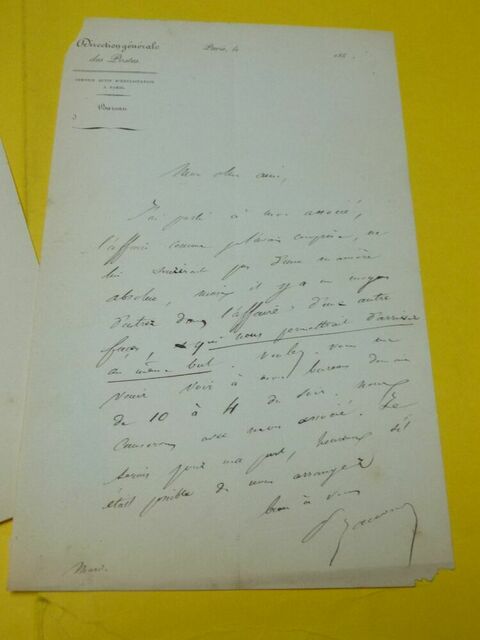 Direction générale
des Postes.
SERVICE ACTIF D'EXPLOITATION
À PARIS.
Bureau
Paris, le 186
Mon cher ami,
J'ai parlé à mon associé,
l'affaire comme j'avais comprise, ne
lui sourirait pas d'une manière
absolue, mais il y a un moyen
d'entrer dans l'affaire d'une autre
façon, qui nous permettrait d'arriver
au même but. Voulez-vous me
venir voir à mon bureau demain
de 10 à 4 du soir. nous
causerons avec mon associé. Je
serais pour ma part, heureux s'il
était possible de nous arranger
bien à vous
Mardi.